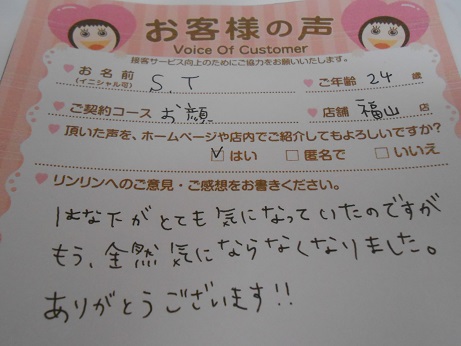 お客様の声
Voice Of Customer
接客サービス向上のためにご協力をお願いいたします。
お名前 (イニシャル可) S.T ご年齢 24 歳
ご契約コース お顔 店舗 福山 店
頂いた声を、ホームページや店内でご紹介してもよろしいですか?
はい 匿名で いいえ
リンリンへのご意見・ご感想をお書きください。
はな下がとても気になっていたのですが
もう、全然気にならなくなりました。
ありがとうございます!!